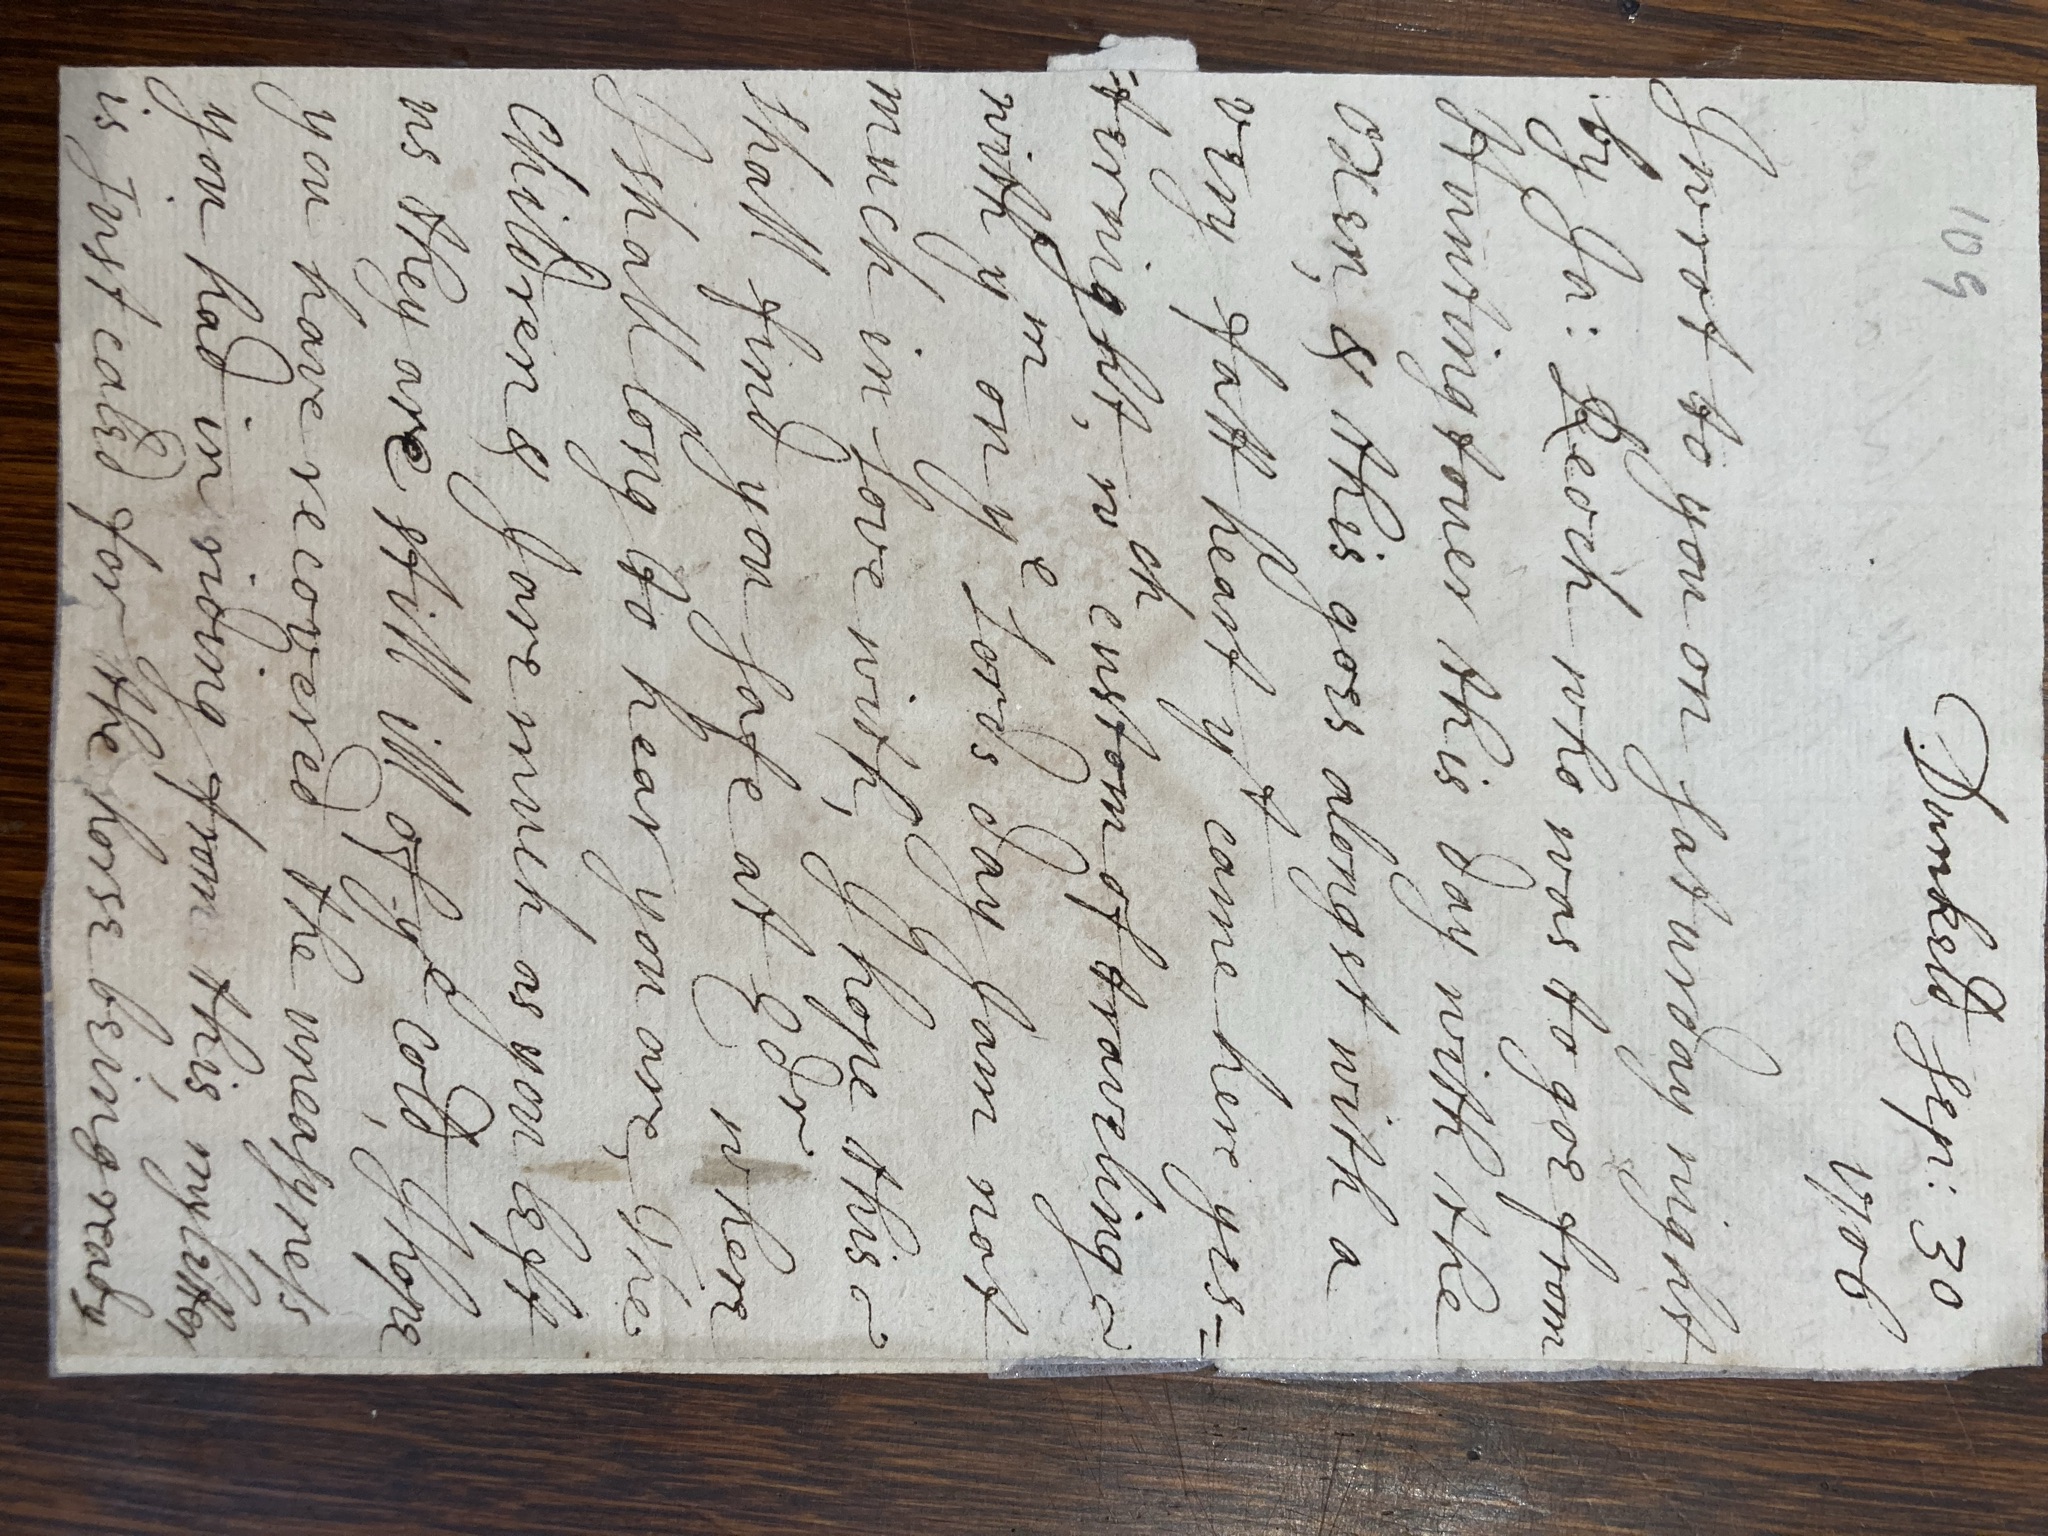 109
Dunkeld sep: 30
1706
I wrot to you on saturday night
by Ja: Reoch who was to goe from
Huntingtouer this day with the
oxen, & this goes alongst with a
very fatt heart yt came here yes=
=ternight, wch custom of traveling
with ym on ye Lords day I am not
much in love with, I hope this
shall find you safe at Edr where
I shall long to hear you are, The
children & I are much as you left
us they are still ill of ye cold, I hope
you have recovered the uneasyness
you had in riding from this, my litter
is just caled for the horse being ready